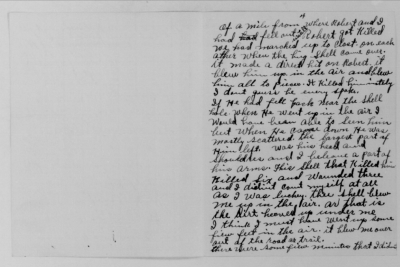 4
of a mile from where Robert and I
had fell out Robert got Killed
We had marched up to Clost on each
other when the big shell came over.
it made a direct hit on Robert. it
blew him up in the air and blew
him all to pieces. it Killed him
I dont guess he every spoke.
If He had fell back near the shell
hole when He went up in the air I
Would have been able to seen him
but When He came down He was
mostly scattered the largest part of
Him left was his head and
shoulders and I believe a part of
his arms. This shell that Killed him
Killed six and Wounded three
and I didint count myself at all
as I was luckey. this shell blew
me up in the air. or that is
the dirt heaved up under me
I think I must have went up some
fiew feet in the air. it blew me over
out of the road or trail.
there were some fiew minutes that I